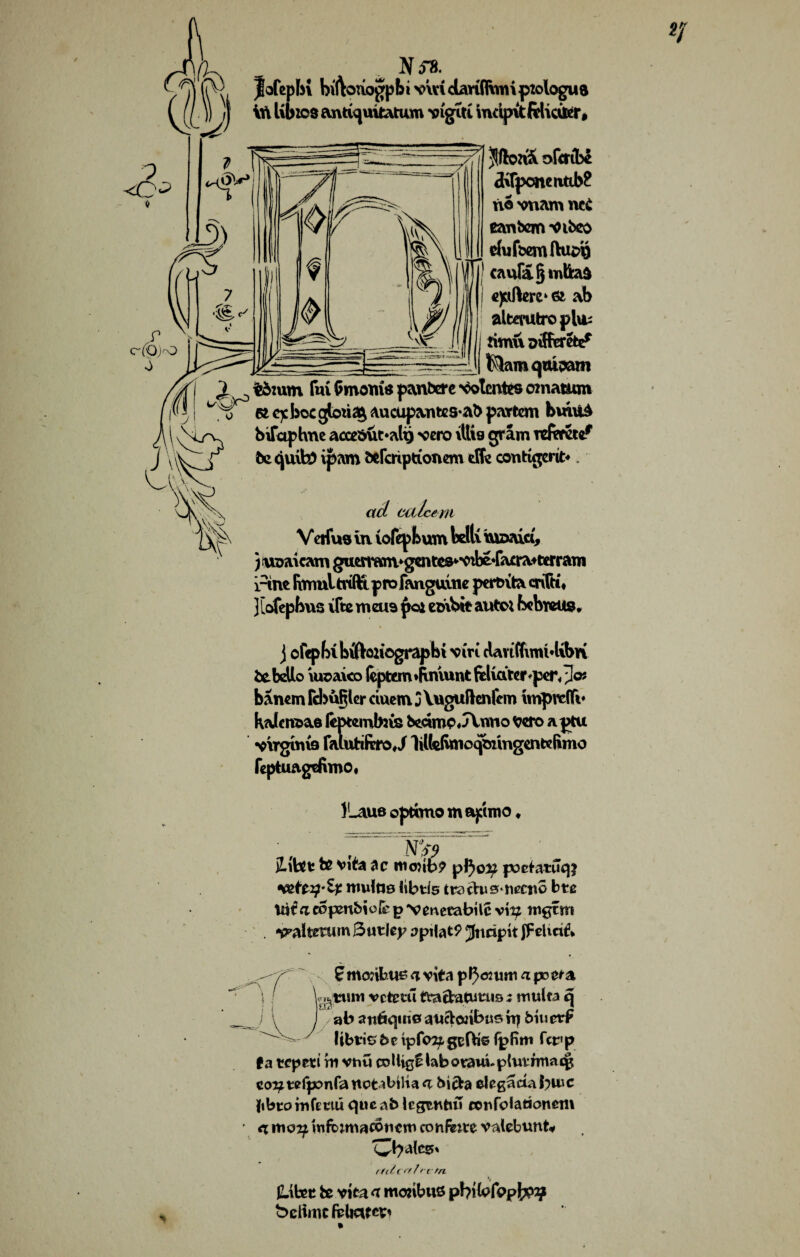 27
N 58.
Josephi historiogrphi viri clarissimi prologus
in libros antiquitatum viginti incipit feliciter.
Historiā oscribē
disponentib⁹
nō vnam nec
eandem video
eiusdem studij
causā ꝫ mltas
existere· et ab
alterutro plu⸗
rimū differēte
Nam quidam
eorum sui sermonis pandere volentes ornatum
et ex hoc gloriaꝫ aucupantes· ad partem huius
ad calcem
Versus in iosephum belli iudaici,
judaicam guerram·gentes·vrbe·sacra·terram
hinc simul tristi pro sanguine perdita cristi.
Josephus iste meus pot edidit autor hebreus.
josephi historiographi viri clarissimi·libri
de bello iudaico septem·finiunt feliciter·per. Jo⸗
hānem schüszler ciuem Augustensem impressi·
kalendas septembris decimo. Anno vero a ptu
virginis salutifero. Millesimoquadringentesimo
septuagesimo.
Laus optimo maximo.
N 59
Liber de vita ac morib⁹ ph̄oꝝ poetarūqꝫ
veteꝝ· Ex multis libris tractus· necnō bre
uit̄ a cōpendiose p venerabilē viꝝ mgrm
walterum Burley ɔpilat⁹ Incipit Felicit̄.
E moribus a vita ph̄orum a poeta
rum veterū tractaturus : multa q̄
ab antiquis auctoribus in̄ diuers̄
libris de ipsoꝝ gestis sp̄sim scrip
ta reperi in vnū colligē laboraui. plurimaqꝫ
eoꝝ responsa notabilia a dicta elegācia huic
libro inserui que ab legentiū consolationem
a moꝝ informacōnem conferre valebunt.
Thales.
ad calcem
Liber de vita a moribus philosophoꝝ
desimit feliciter